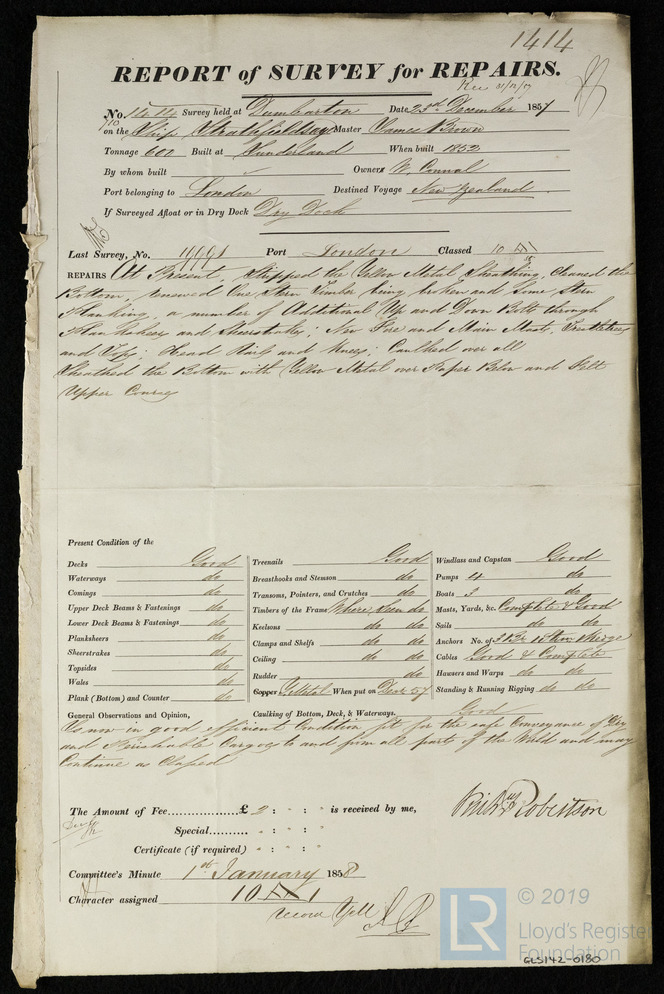 1414
REPORT of SURVEY for REPAIRS.
Rec 31/12/57
No. 1414 Survey held at Dumbarton Date 23rd December 1857
on the Ship Strathfieldsay Master James Brown
Tonnage 607 Built at Sunderland When built 1852
By whom built Owners W. Connal
Port belonging to London Destined Voyage New Zealand
If Surveyed Afloat or in Dry Dock Dry Dock
Last Survey, No. 19991 Port London Classed 10 A1
REPAIRS At Present Stripped the Yellow Metal Sheathing, cleaned the
Bottom, renewed One Stern Timber being broken and Some Stern
Planking, a number of Additional Up and Down Bolts through
Planksheers and Sheerstrakes; New Fore and Main Masts, Trestletrees
and Tops; Head Rails and Knees; Caulked over all
Sheathed the Bottom with Yellow Metal over Paper Below and Felt
Upper Courses
Present Condition of the
Decks Good
Waterways do
Comings do
Upper Deck Beams & Fastenings do
Lower Deck Beams & Fastenings do
Planksheers do
Sheerstrakes do
Topsides do
Wales do
Plank (Bottom) and Counter do
Treenails Good
Breasthooks and Stemson do
Transoms, Pointers, and Crutches do
Timbers of the Frame Where Seen do
Keelsons do do
Clamps and Shelfs do do
Ceiling do do
Rudder do
Copper Y Metal When put on Decr 57
Caulking of Bottom, Deck, & Waterways. Good
Windlass and Capstan Good
Pumps 4 do
Boats 3 do
Masts, Yards, &c. Complete & Good
Sails do do
Anchors No. of 3 Br 1 Stream 1 Kedge
Cables Good & Complete
Hawsers and Warps do do
Standing & Running Rigging do do
General Observations and Opinion,
Is now in good efficient Condition, fit for the safe Conveyance of Dry
and Perishable Cargoes to and from all parts of the World and may
Continue as Classed
The Amount of Fee £ 2 : " : " is received by me,
Robertson
Special " : " : "
Certificate (if required) " : " : "
Committee's Minute 1st January 1858
Character assigned 10 A 1
LR
© 2019
Lloyd's Register
Foundation
GLS142-0180